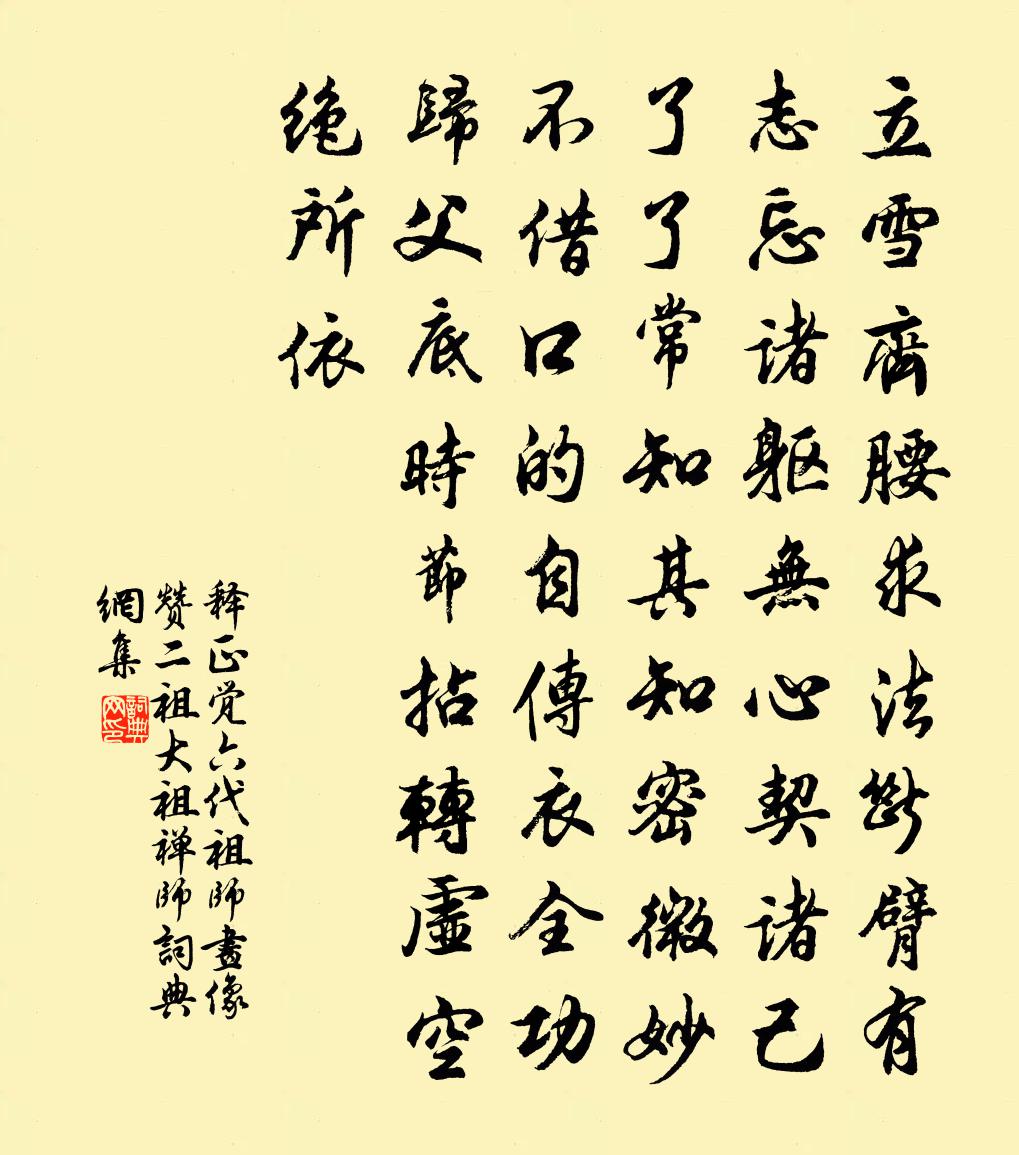 立雪齊腰求法斷臂有
志忘諸躯無心契諸己
了了常知其知密微妙
不借口的自傳衣全功
歸父底時節拈轉虛空
绝所依
释正觉六代祖師畫像
赞二祖大祖禅師詞典
網集
詞典网印